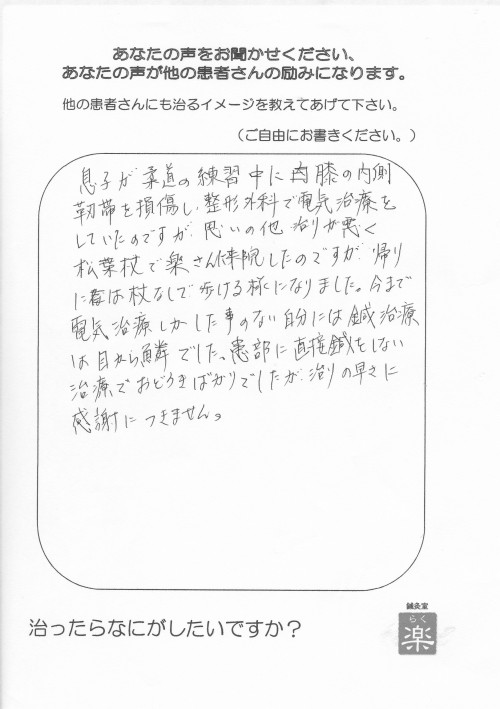 あなたの声をお聞かせください、
あなたの声が他の患者さんの励みになります。
他の患者さんにも治るイメージを教えてあげて下さい。
(ご自由にお書きください。)
息子が柔道の練習中に内膝の内側
靭帯を損傷し、整形外科で電気治療を
していたのですが、思いの他治りが悪く
松葉杖で楽さんに来院したのですが、帰り
には杖なしで歩ける様になりました。今まで
電気治療しかした事のない自分には鍼治療
は目から鱗でした、患部に直接鍼をしない
治療でおどろきばかりでしたが、治りの早さに
感謝につきません。
治ったらなにがしたいですか?
鍼灸室
らく
楽